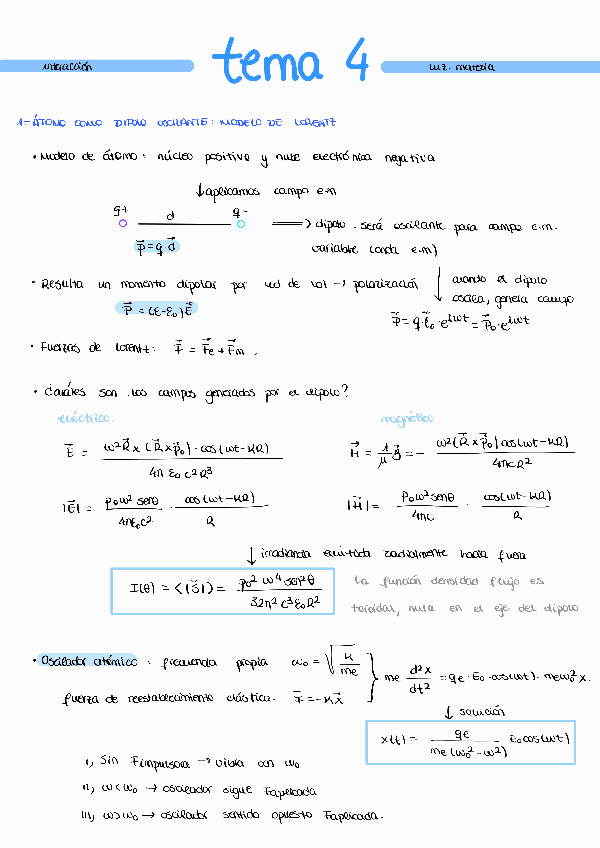 interacción
tema 4
luz-materia
1- ÁTOMO COMO DIPOLO OSCILANTE: MODELO DE LORENTZ
• Modelo de átomo: núcleo positivo y nube electrónica negativa
↓ aplicamos campo e.m
q+ d q-
⟹ dipolo. será oscilante para campo e.m.
p⃗ = q·d⃗
variable (onda e.m)
• Resulta un momento dipolar por ud de vol → polarización
P⃗ = (ε-ε₀)E⃗
↓ cuando el dipolo
oscila, genera campo
p⃗ = q·l⃗₀·e^iωt = p⃗₀·e^iωt
• Fuerzas de Lorentz: F⃗ = F⃗e + F⃗m.
• ¿Cuáles son los campos generados por el dipolo?
eléctrico.
magnético
E⃗ = ω²R⃗ x (R⃗ x p⃗₀)·cos(ωt-KR) / 4π ε₀ c² R³
H⃗ = 1/μ B⃗ = - ω²(R⃗ x p⃗₀)cos(ωt-KR) / 4πcR²
|E⃗| = p₀ω² senθ / 4πε₀c² · cos(ωt-KR) / R
|H⃗| = p₀ω² senθ / 4πc · cos(ωt-KR) / R
↓ irradiancia emitida radialmente hacia fuera
I(θ) = <|S⃗|> = p₀² ω⁴ sen²θ / 32π² c³ ε₀ R²
la función densidad flujo es
toroidal, nula en el eje del dipolo
• Oscilador atómico: frecuencia propia ω₀ = √(K/me)
me d²x/dt² = qe·E₀·cos(ωt)- meω₀² x.
fuerza de reestablecimiento elástica. F⃗ = -Kx⃗
↓ solución
x(t) = qe / me(ω₀²-ω²) E₀cos(ωt)
i) Sin Fimpulsora → vibra con ω₀
ii) ω<ω₀ → oscilador sigue Faplicada
iii) ω>ω₀ → oscilador sentido opuesto Faplicada.